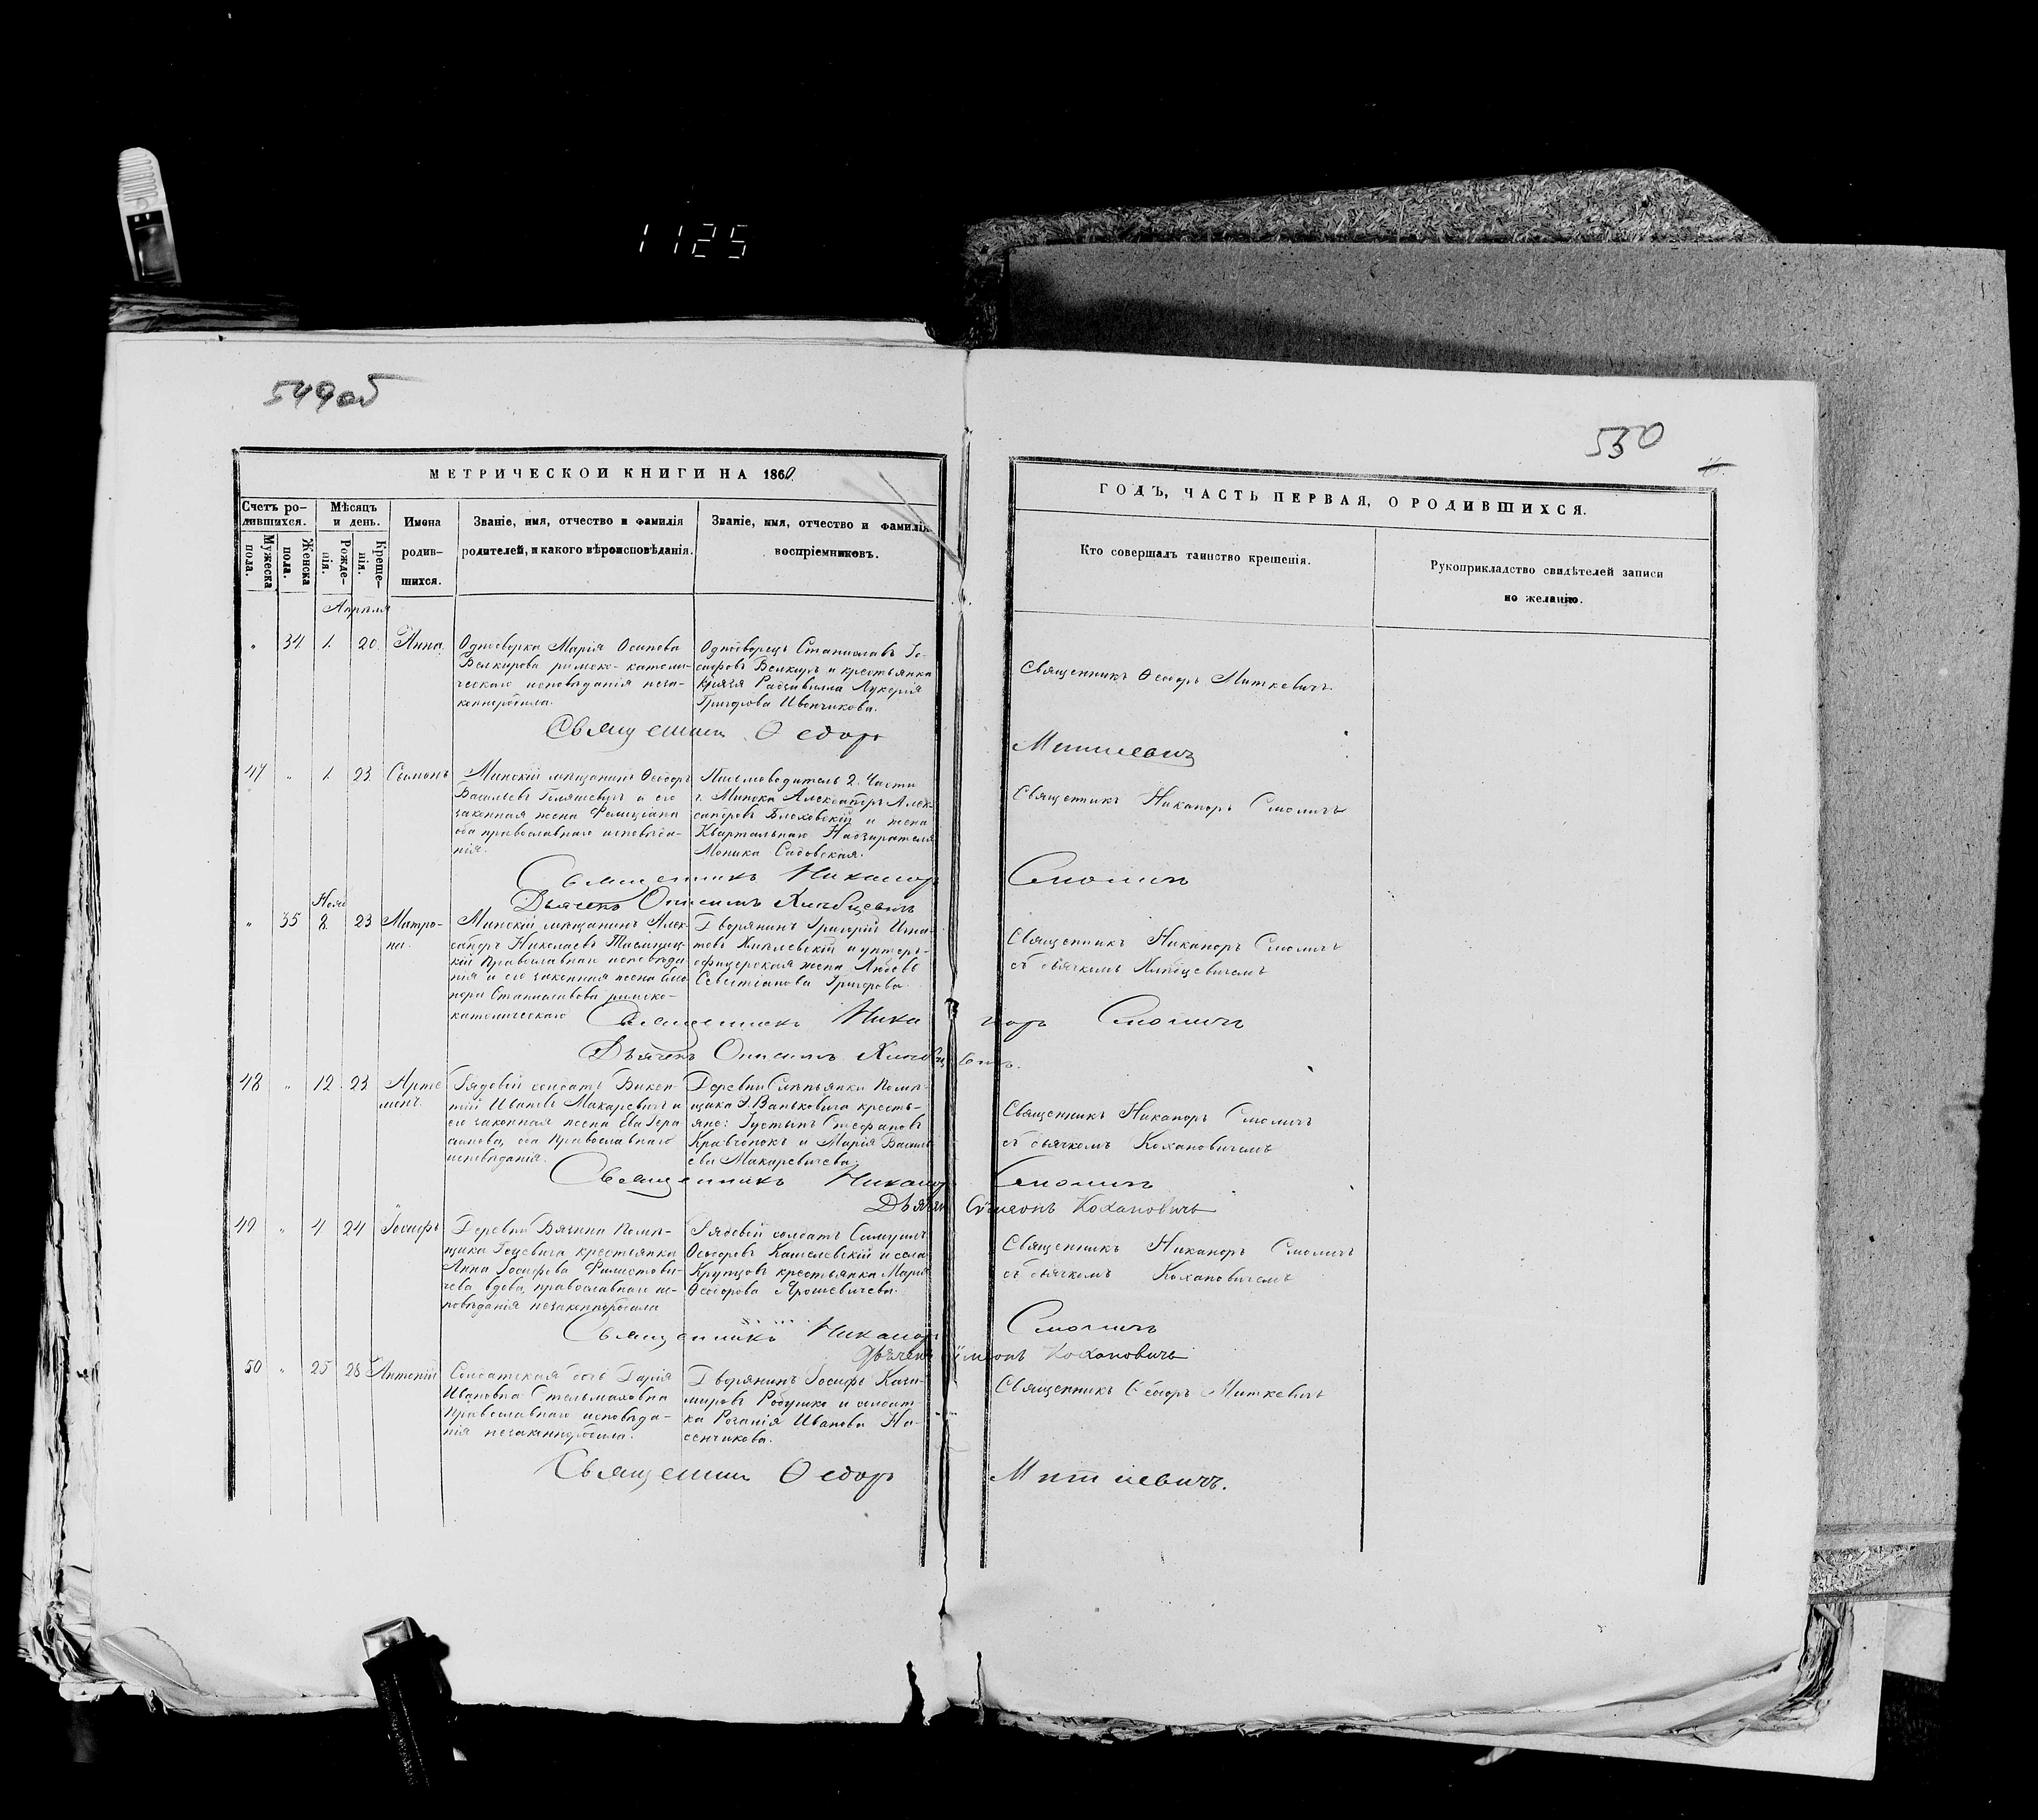 1125
549об
550
МЕТРИЧЕСКОЙ КНИГИ НА 1860
ГОДЪ, ЧАСТЬ ПЕРВАЯ, О РОДИВШИХСЯ.
Счетъ ро-
дившихся.
Мужеска
пола.
Женска
пола.
Мѣсяцъ
и день.
Рожде-
нія.
Креще-
нія.
Имена
родив-
шихся.
Званіе, имя, отчество и фамилія
родителей, и какого вѣроисповѣданія.
Званіе, имя, отчество и фамилія
воспріемниковъ.
Кто совершалъ таинство крещенія.
Рукоприкладство свидѣтелей записи
по желанію.
Апрѣля
" 34 1. 20. Анна
Однодворка Марія Осипова
римско-католи-
ческаго исповѣданія неза-
коннорожденна.
Однодворецъ Станиславъ Іо-
сифовъ и крестьянка
Князя Радзивилла Лукерія
Григорова Ивончикова.
Священникъ Ѳеодоръ Миткевичъ.
Священникъ Ѳедоръ Миткевичъ
47 " 1. 23 Симонъ
Минскій мѣщанинъ Ѳеодоръ
Васильевъ и его
законная жена Фелиціана
оба православнаго исповѣда-
нія.
Письмоводитель 2. Части
г. Минска Александръ Алек-
сандровъ и жена
Квартальнаго Надзирателя
Моника Садовская.
Священникъ Никаноръ Смоличъ
Священникъ Никаноръ Смоличъ
Дьячекъ Онисимъ
" 35 8. 23 Матро-
на.
Минскій мѣщанинъ Алек-
сандръ Николаевъ
кій Православнаго исповѣда
нія и его законная жена Еле
нора Станиславова римско-
католическаго
Дворянинъ Григорій Игна-
товъ и унтеръ-
офицерская жена Любовь
Севастіанова Григорова.
Священникъ Никаноръ Смоличъ
съ дьячкомъ
Священникъ Никаноръ Смоличъ
Дьячекъ Онисимъ
48 " 12. 23 Арте
монъ.
Рядовой солдатъ Викен-
тій Ивановъ Макаревичъ и
его законная жена Ева Гера
симова, оба Православнаго
исповѣданія.
Деревни Слѣпянки Помѣ-
щика Э. Ваньковича кресть-
яне: Густынъ Стефановъ
Кравчонокъ и Марія Василь
ева Макаревичева.
Священникъ Никаноръ Смоличъ
съ дьячкомъ Кохановичемъ
Священникъ Никаноръ Смоличъ
Дьячекъ Сѵмеонъ Кохановичъ
49 " 4 24 Іосифъ
Деревни Вячина Помѣ-
щика крестьянка
Анна Іосифова Филистови-
чева вдова, православнаго ис-
повѣданія незаконнорождена
Рядовой солдатъ Самуилъ
Ѳеодоровъ и села
Крупцовъ крестьянка Марія
Ѳеодорова Ярошевичева.
Священникъ Никаноръ Смоличъ
съ дьячкомъ Кохановичемъ
Священникъ Никаноръ Смоличъ
Дьячекъ Сѵмеонъ Кохановичъ
50 " 25 28 Антоній
Солдатская дочь Дарія
Ивановна Стельмаховна
Православнаго исповѣда-
нія незаконнорождена.
Дворянинъ Іосифъ Кази-
мировъ Робушко и солдат-
ка Ивановa На-
сенчикова.
Священникъ Ѳеодоръ Миткевичъ
Священникъ Ѳедоръ Миткевичъ.